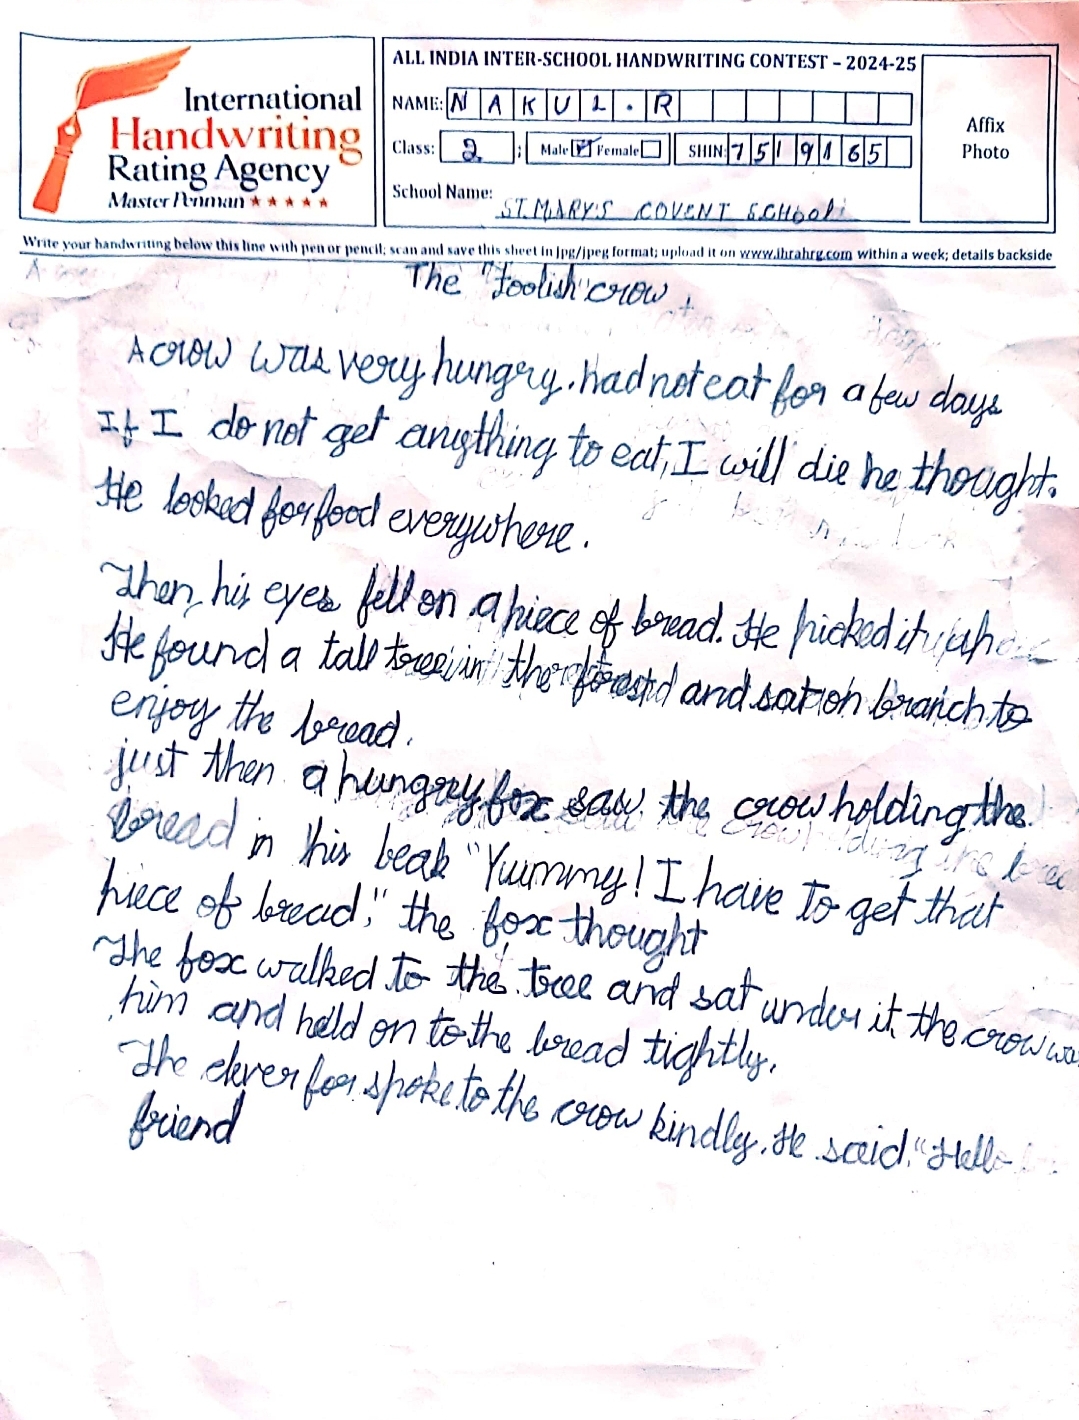 International
Handwriting
Rating Agency
Master Penman
ALL INDIA INTER-SCHOOL HANDWRITING CONTEST – 2024-25
NAME: NAKUL.R
Class: 2 ; Male Female SHIN: 7519165
School Name: ST.MARY'S COVENT SCHOOL
Affix
Photo
Write your handwriting below this line with pen or pencil; scan and save this sheet in jpg/jpeg format; upload it on www.ihrahrg.com within a week; details backside
The "Foolish" crow
A crow was very hungry. had not eat for a few days
If I do not get anything to eat, I will die he thought.
He looked for food everywhere.
Then, his eyes fell on a piece of bread. He picked it up
He found a tall tree in the forest and sat on branch to
enjoy the bread.
just then a hungry fox saw the crow holding the
bread in his beak "Yummy! I have to get that
piece of bread," the fox thought
The fox walked to the tree and sat under it, the crow
him and held on to the bread tightly.
The clever for spoke to the crow kindly. He said. "Hello
friend